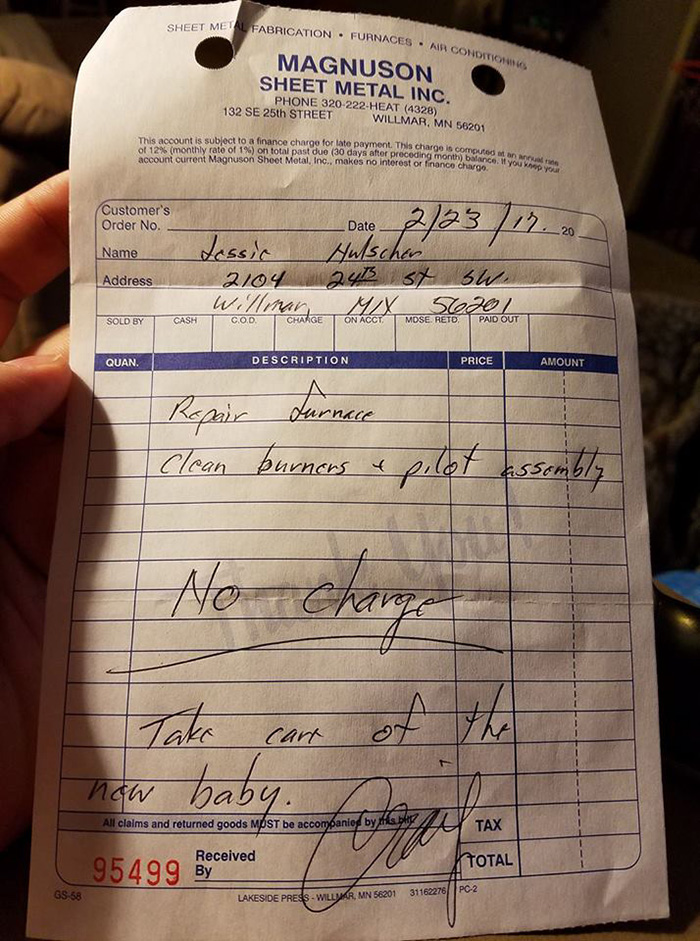 SHEET METAL FABRICATION • FURNACES • AIR CONDITIONING
MAGNUSON
SHEET METAL INC.
PHONE 320-222-HEAT (4328)
132 SE 25th STREET WILLMAR, MN 56201
This account is subject to a finance charge for late payment. This charge is computed at an annual rate
of 12% (monthly rate of 1%) on total past due (30 days after preceding month) balance. If you keep your
account current Magnuson Sheet Metal, Inc., makes no interest or finance charge.
Customer's
Order No. Date 2/23/17. 20
Name Jessie Hulscher
Address 2104 24TH St SW.
Willmar, MN 56201
SOLD BY CASH C.O.D. CHARGE ON ACCT. MDSE. RETD. PAID OUT
QUAN. DESCRIPTION PRICE AMOUNT
Repair furnace
Clean burners + pilot assembly
Thank You!
No charge
Take care of the
new baby.
All claims and returned goods MUST be accompanied by this bill.
TAX
95499 Received By Craig TOTAL
GS-58 LAKESIDE PRESS - WILLMAR, MN 56201 31162276 PC-2